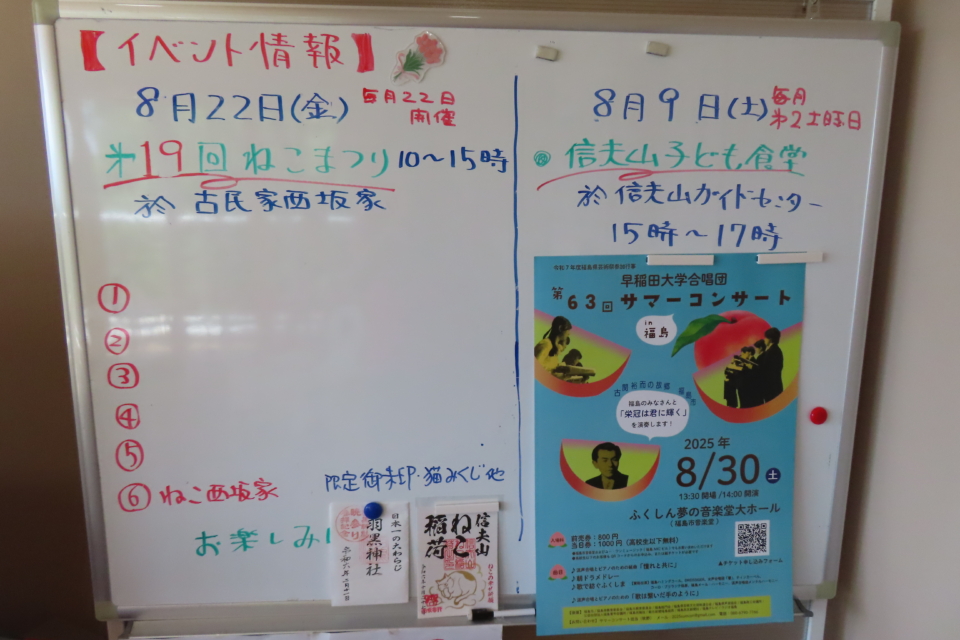 【イベント情報】
8月22日(金)
毎月22日
開催
第19回 ねこまつり 10〜15時
於 古民家西坂家
①
②
③
④
⑤
⑥ ねこ西坂家
限定御朱印・猫みくじ他
お楽しみに
日本一の大わらじ
羽黒神社
信夫山
ねこ
稲荷
8月9日(土)
毎月
第2土曜日
信夫山子ども食堂
於 信夫山ガイドセンター
15時〜17時
早稲田大学合唱団
第63回 サマーコンサート
in
福島
古関裕而の故郷 福島市
福島のみなさんと
「栄冠は君に輝く」
を演奏します!
2025年
8/30 土
13:30 開場 /14:00 開演
ふくしん夢の音楽堂大ホール
(福島市音楽堂)
前売券:800円
当日券:1000円(高校生以下無料)
▲チケット申し込みフォーム